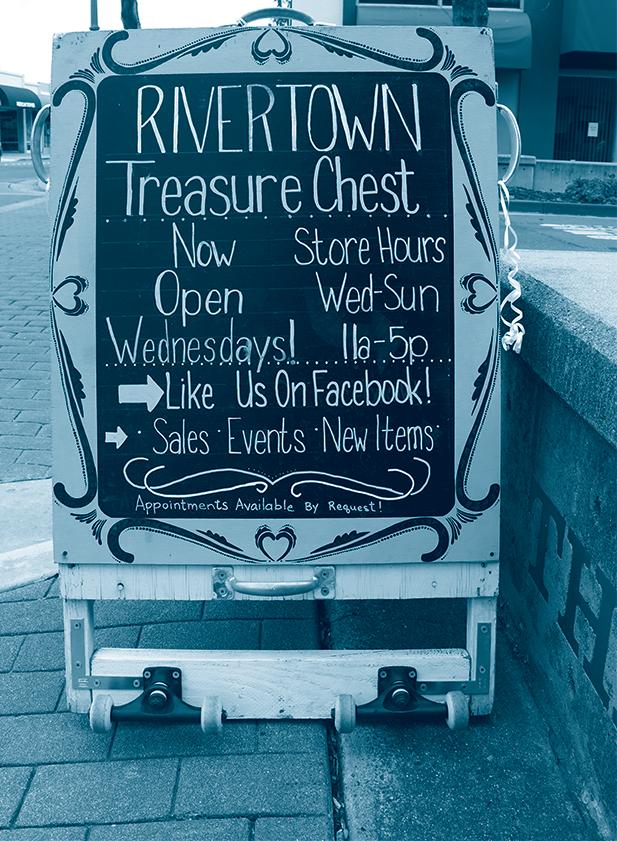 RIVERTOWN
Treasure Chest
Now Store Hours
Open Wed-Sun
Wednesdays! 11a-5p
Like Us On Facebook!
· Sales · Events · New Items ·
Appointments Available By Request!
TH